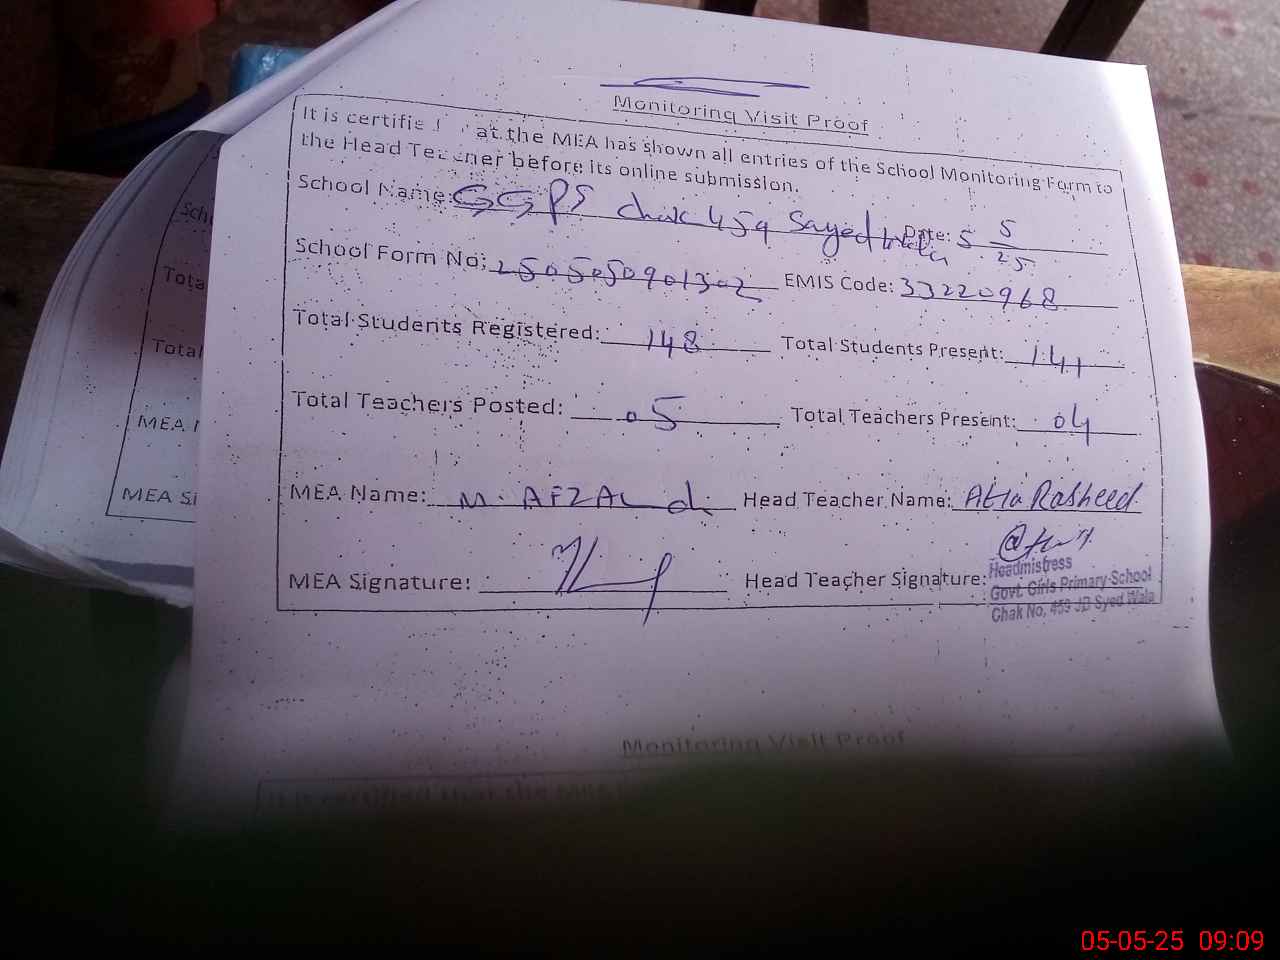 Monitoring Visit Proof
It is certifie at the MEA has shown all entries of the School Monitoring Form to
the Head Teacher before its online submission.
School Name: GGPS chak 459 Sayed wala Date: 5 5/25
School Form No: 2505050901302 EMIS Code: 33220968
Total Students Registered: 148 Total Students Present: 141
Total Teachers Posted: 05 Total Teachers Present: 04
MEA Name: M. AFZAL Head Teacher Name: Atia Rasheed
MEA Signature: Head Teacher Signature:
Headmistress
Govt. Girls Primary School
Chak No, 459 JB Syed Wala
Monitoring Visit Proof
It is certified that the MEA
Sch
Tota
Total
MEA
MEA Si
05-05-25 09:09